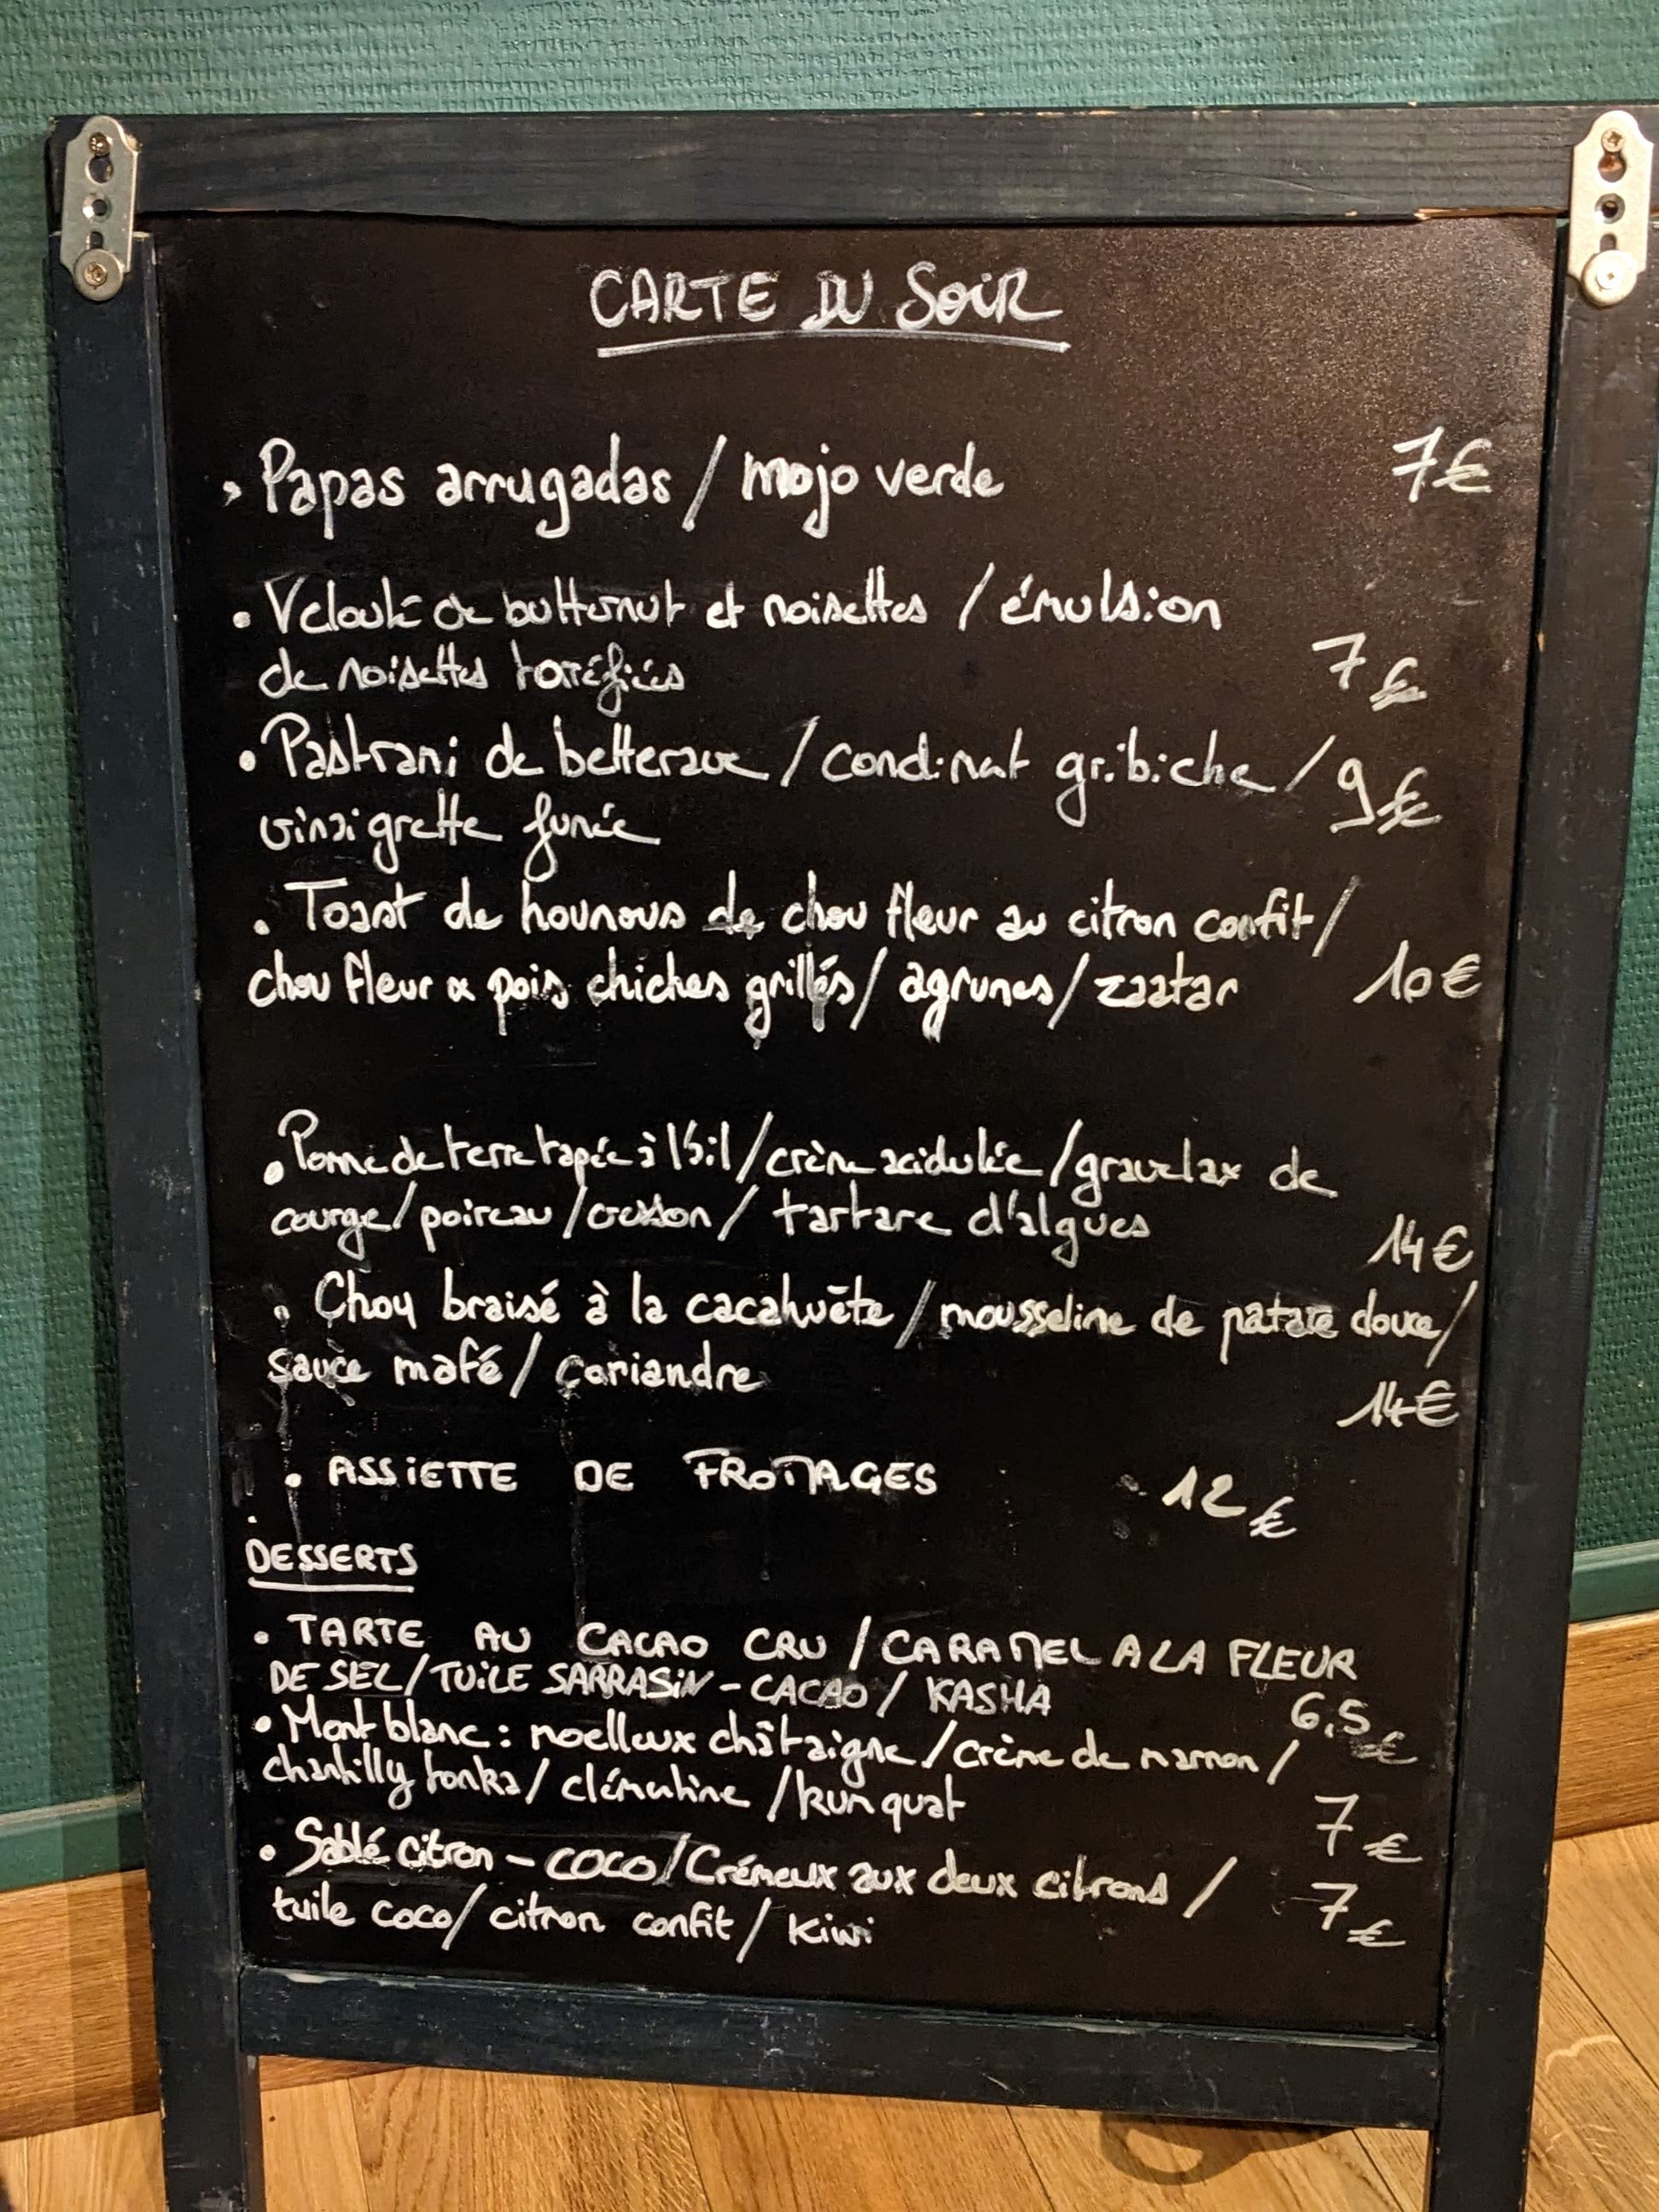 CARTE DU SOIR
• Papas arrugadas / mojo verde 7€
• Velouté de butternut et noisettes / émulsion
de noisettes torréfiées 7€
• Pastrami de betterave / condiment gribiche / 9€
vinaigrette fumée
• Toast de houmous de chou fleur au citron confit /
chou fleur & pois chiches grillés / agrumes / zaatar 10€
• Pomme de terre tapée à l'ail / crème acidulée / gravelax de
courge / poireau / cresson / tartare d'algues 14€
• Chou braisé à la cacahuète / mousseline de patate douce /
sauce mafé / coriandre 14€
• ASSIETTE DE FROMAGES 12€
DESSERTS
• TARTE AU CACAO CRU / CARAMEL A LA FLEUR
DE SEL / TUILE SARRASIN - CACAO / KASHA 6,5€
• Mont blanc : moelleux châtaigne / crème de marron /
chantilly tonka / clémentine / kumquat 7€
• Sablé citron - coco / Crémeux aux deux citrons / 7€
tuile coco / citron confit / kiwi